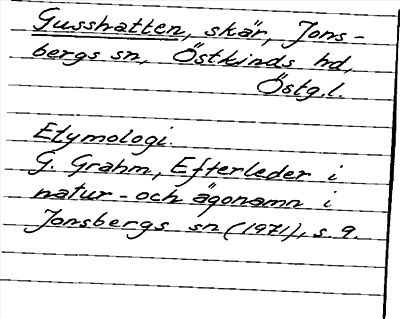 Gusshatten, skär, Jons-
bergs sn, Östkinds hd,
Östg.l.
Etymologi.
G. Grahm, Efterleder i
natur- och ägonamn i
Jonsbergs sn (1971), s. 9.